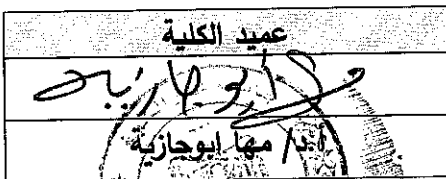 عميد الكلية
أ.د/ مها ابوجازية